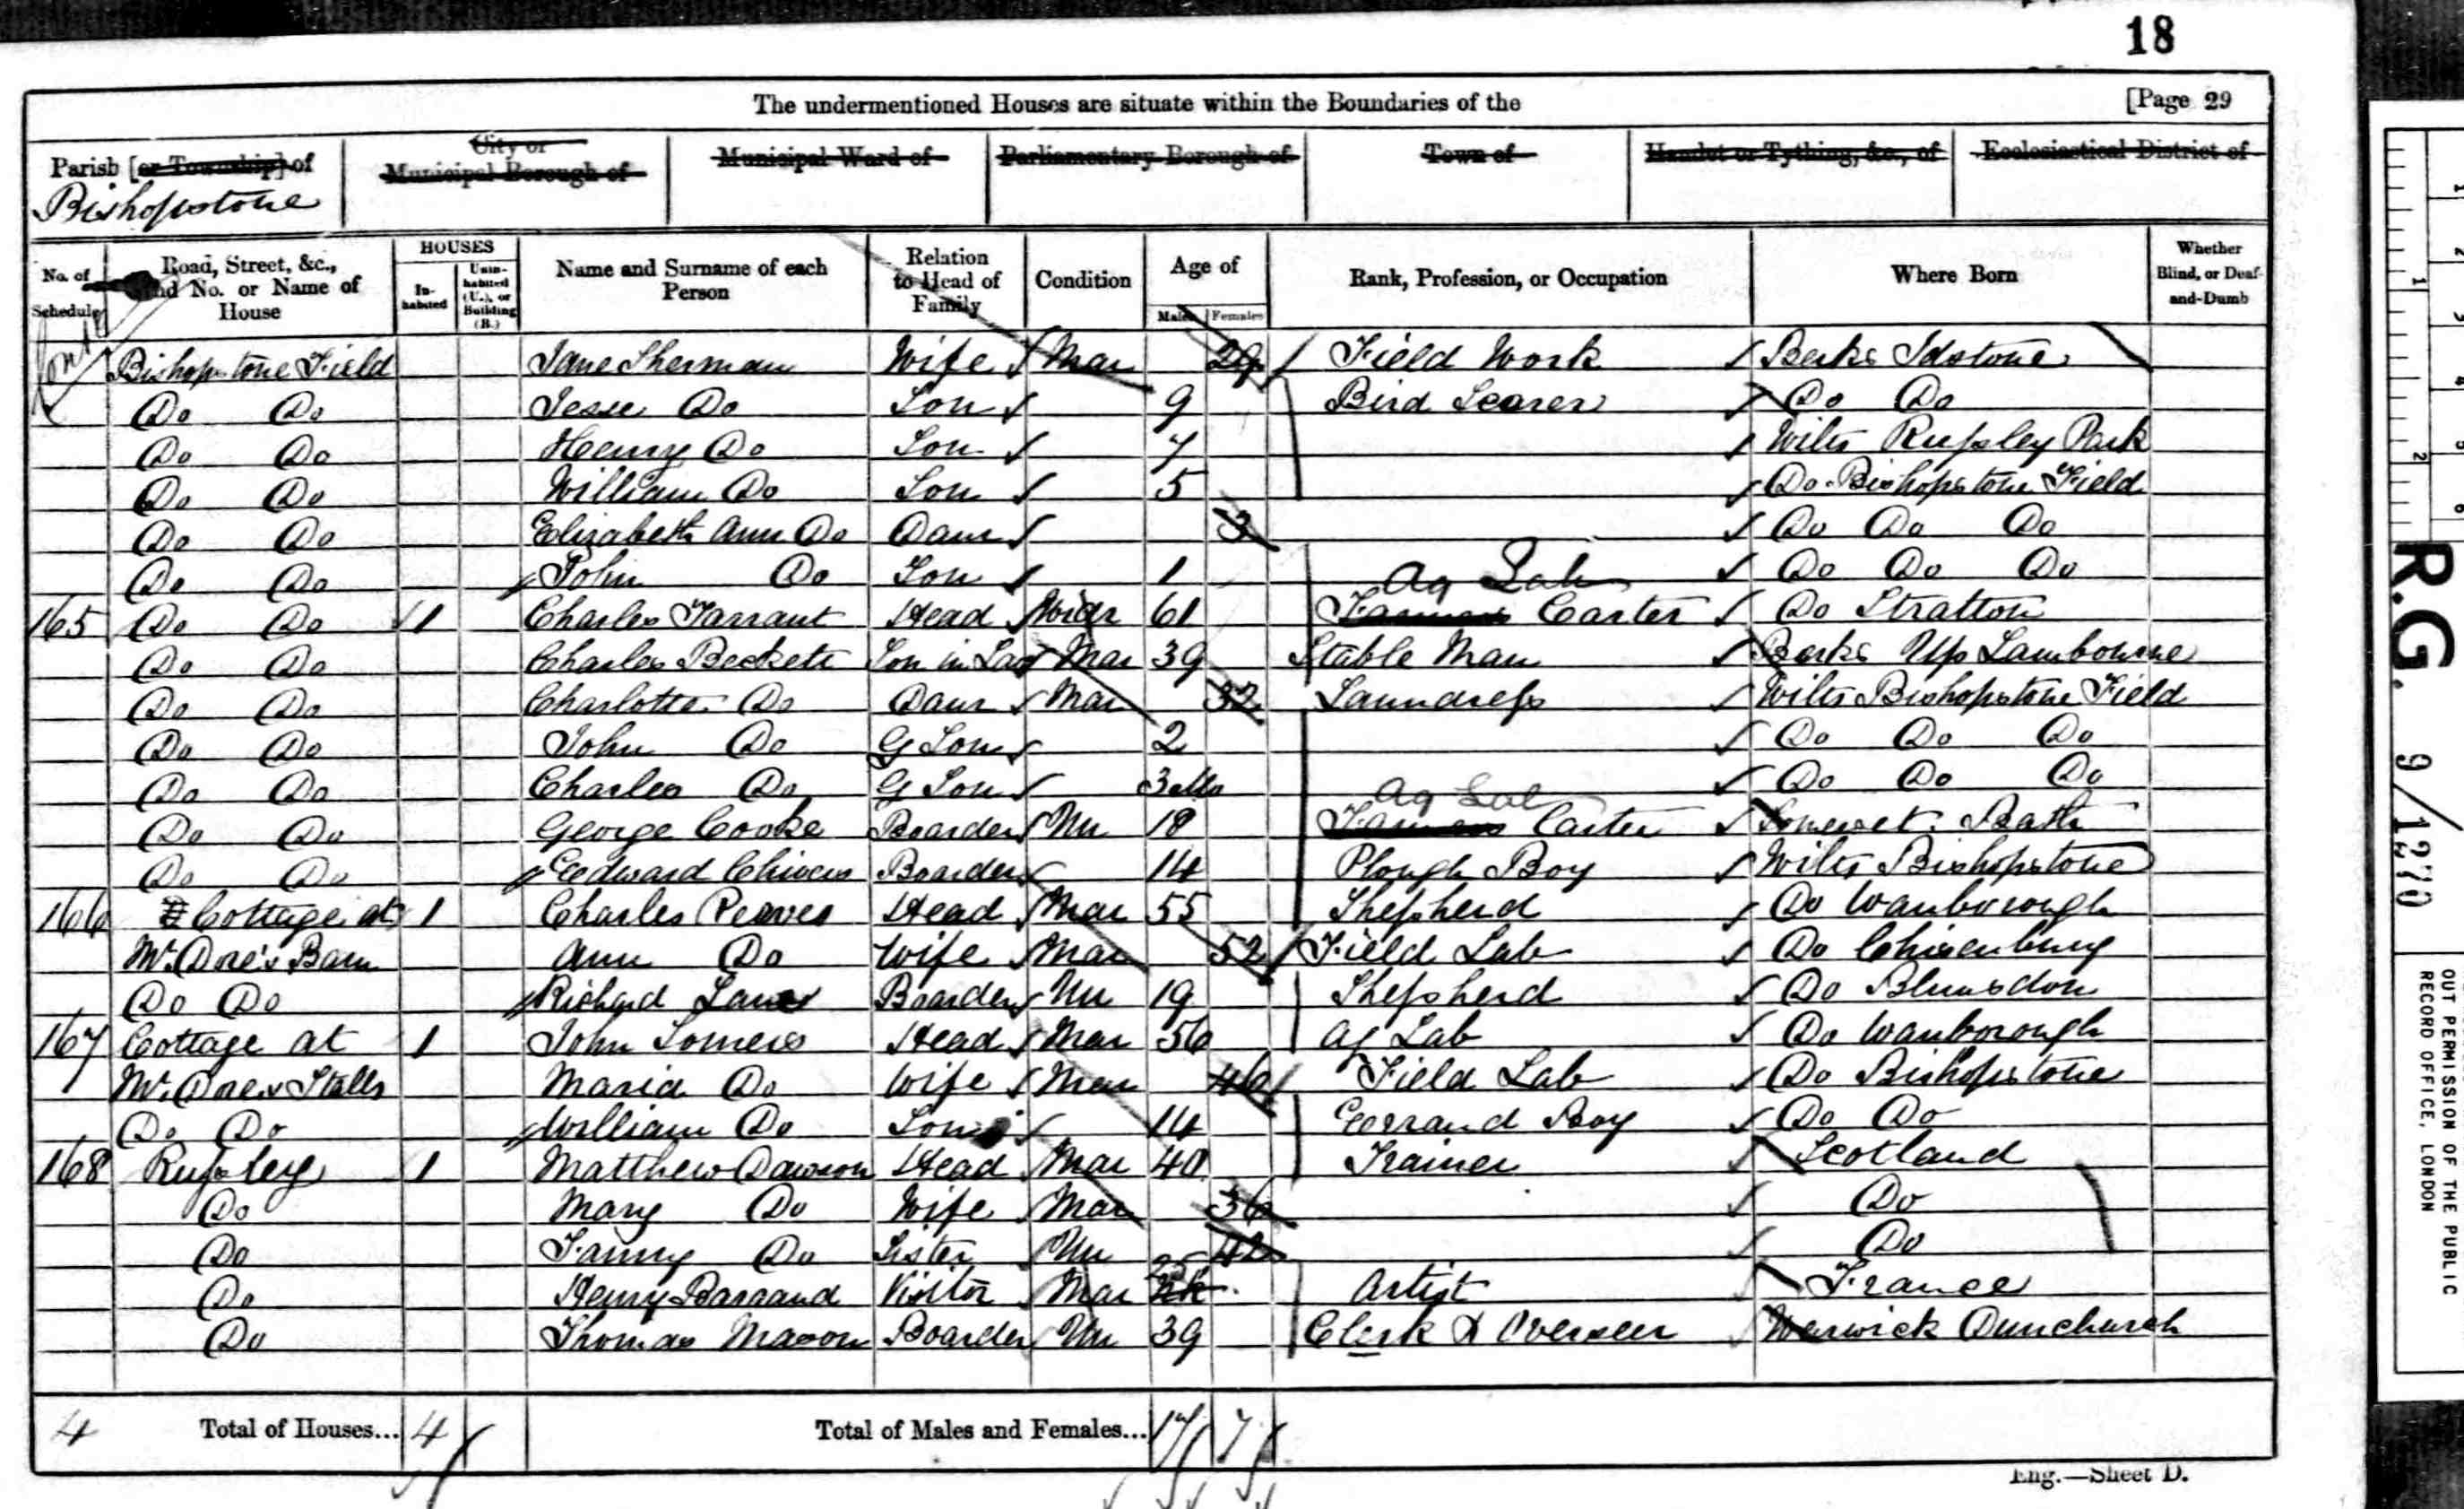 18
The undermentioned Houses are situate within the Boundaries of the [Page 29
Parish [or Township] of City or Municipal Borough of Municipal Ward of Parliamentary Borough of Town of Hamlet or Tything, &c., of Ecclesiastical District of
Bishopstone
No. of Schedule Road, Street, &c., and No. or Name of House HOUSES Inhabited Uninhabited (U.), or Building (B.) Name and Surname of each Person Relation to Head of Family Condition Age of Males Females Rank, Profession, or Occupation Where Born Whether Blind, or Deaf-and-Dumb
Cont Bishopstone Field Jane Sherman Wife Mar 29 Field Work Berks Idstone
Do Do Jesse Do Son 9 Bird Scarer Do Do
Do Do Henry Do Son 7 Wilts Russley Park
Do Do William Do Son 5 Do Bishopstone Field
Do Do Elizabeth Ann Do Daur 3 Do Do Do
Do Do John Do Son 1 Do Do Do
Ag Lab
165 Do Do 1 Charles Tarrant Head Widr 61 Farmers Carter Do Stratton
Do Do Charles Beckett Son in Law Mar 39 Stable Man Berks Up Lambourne
Do Do Charlotte Do Daur Mar 32 Laundress Wilts Bishopstone Field
Do Do John Do G Son 2 Do Do Do
Do Do Charles Do G Son 3 Mo Do Do Do
Ag Lab
Do Do George Cooke Boarder Un 18 Farmers Carter Somerset Bath
Do Do Edward Chivers Boarder 14 Plough Boy Wilts Bishopstone
166 Cottage at 1 Charles Reaves Head Mar 55 Shepherd Do Wanborough
Mr. Dore's Barn Ann Do Wife Mar 52 Field Lab Do Chisenbury
Do Do Richard Lane Boarder Un 19 Shepherd Do Blunsdon
167 Cottage at 1 John Somers Head Mar 56 Ag Lab Do Wanborough
Mr. Dore's Stalls Maria Do Wife Mar 46 Field Lab Do Bishopstone
Do Do William Do Son 14 Errand Boy Do Do
168 Russley 1 Matthew Dawson Head Mar 40 Trainer Scotland
Do Mary Do Wife Mar 36 Do
Do Fanny Do Sister Un 42 Do
Do Henry Barraud Visitor Mar 25 Artist France
Do Thomas Mason Boarder Un 39 Clerk & Overseer Warwick Dunchurch
4 Total of Houses... 4 Total of Males and Females... 17 7
Eng.—Sheet D.
1
2
R.G. 9/1270
OUT PERMISSION OF THE PUBLIC
RECORD OFFICE, LONDON